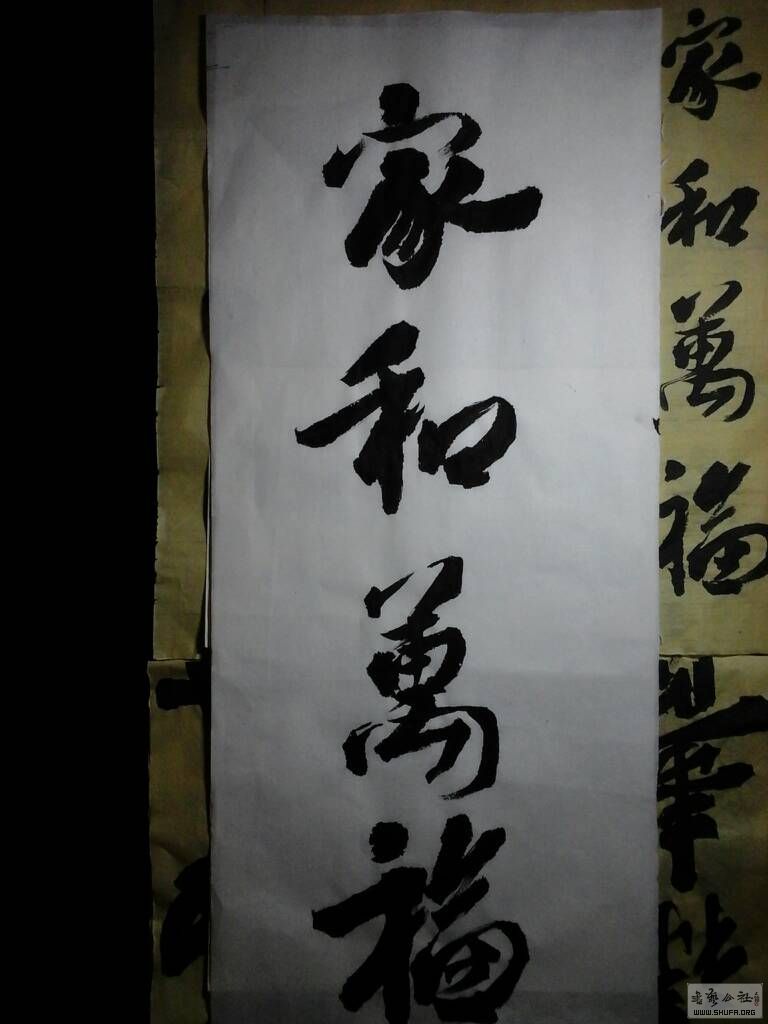 家和萬福
家和萬福
書藝公社
WWW.SHUFA.ORG